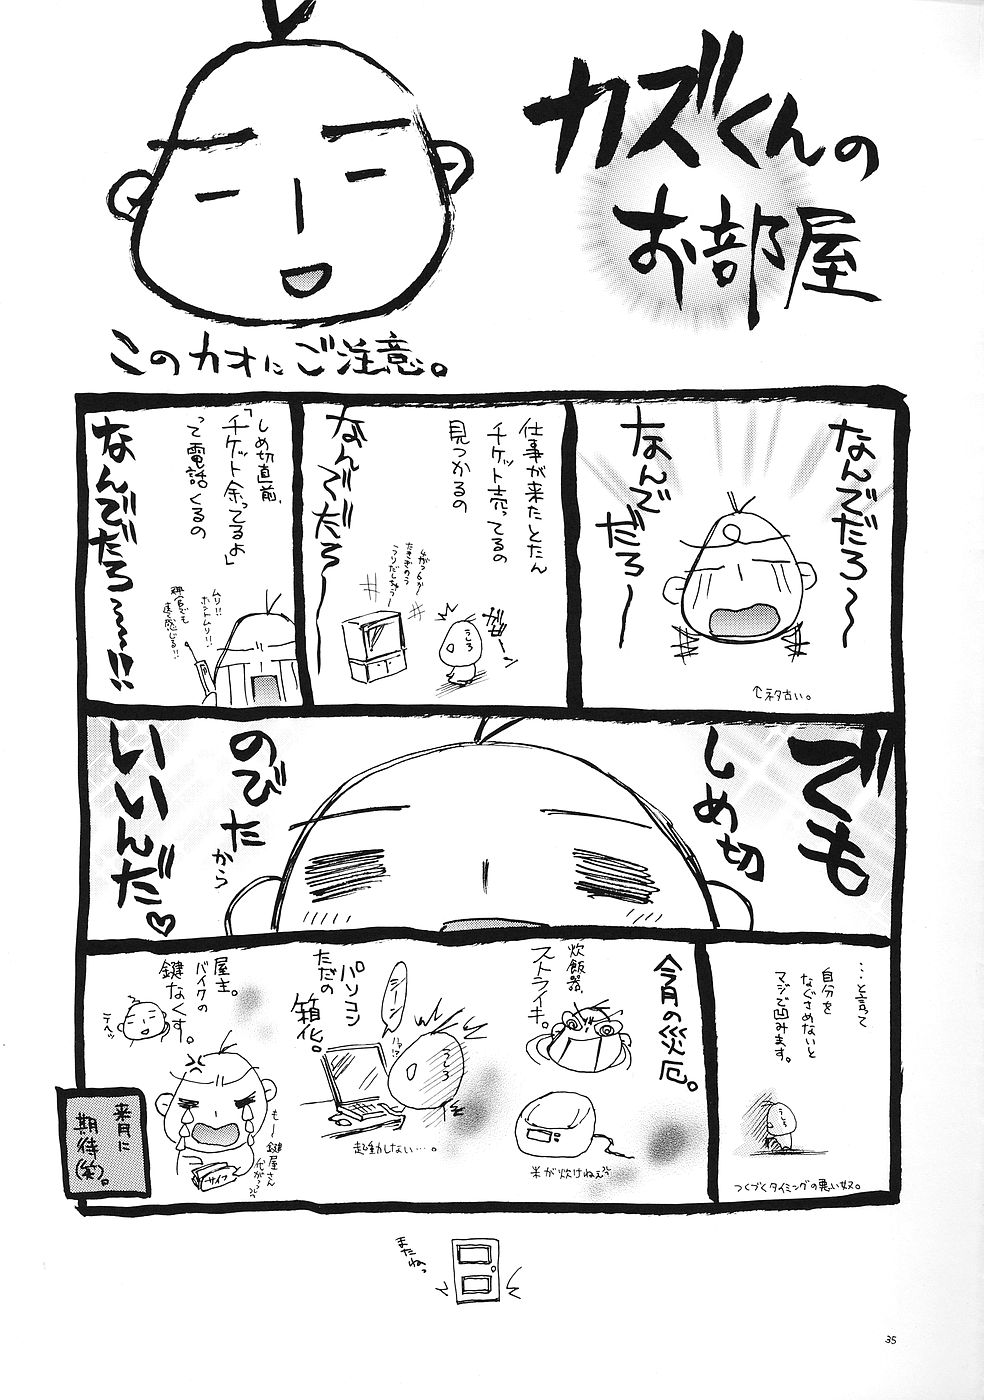 カズくんの
お部屋
このカオにご注意。
なんでだろ〜
なんで
だろ〜
↑ネタ古い。
仕事が来たとたん
チケット売ってるの
見つかるの
なんでだろ〜
うしろ
しめ切直前、
「チケット余ってるよ」
って電話くるの
なんでだろ〜〜!!
ムリ!!
ホントムリ!!
でも
しめ切
のびた
から
いいんだ♡
…と言って
自分を
なぐさめないと
マジで凹みます。
うしろ
つくづくタイミングの悪い奴。
今月の災厄。
炊飯器、
ストライキ。
米が炊けねぇ
パソコン
ただの
箱化。
シーン
うしろ
起動しない…。
屋主。
バイクの
鍵なくす。
テヘッ
も〜
鍵屋さん
サイフ
来月に
期待(笑)。
またねっ
35